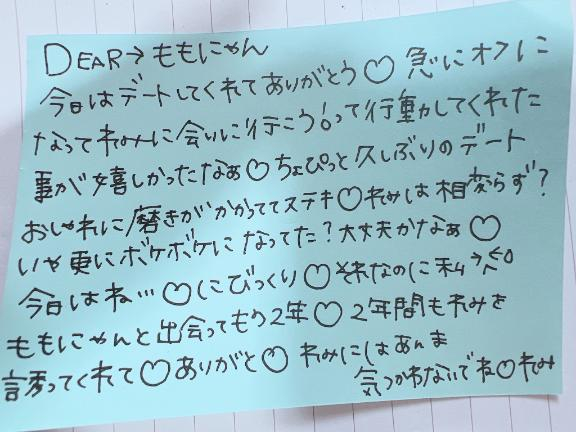 DEAR→ももにゃん
今日はデートしてくれてありがとう♡急にオフに
なってれみに会いに行こう!って行動してくれた
事が嬉しかったなぁ♡ちょぴっと久しぶりのデート
おしゃれに磨きがかかっててステキ♡れみは相変らず?
いや更にボケボケになってた?大丈夫かなぁ♡
今日はね…♡にびっくり♡それなのに私→
ももにゃんと出会ってもう2年♡2年間もれみを
誘ってくれて♡ありがと♡れみにはあんま
気つかわないでね♡れみ